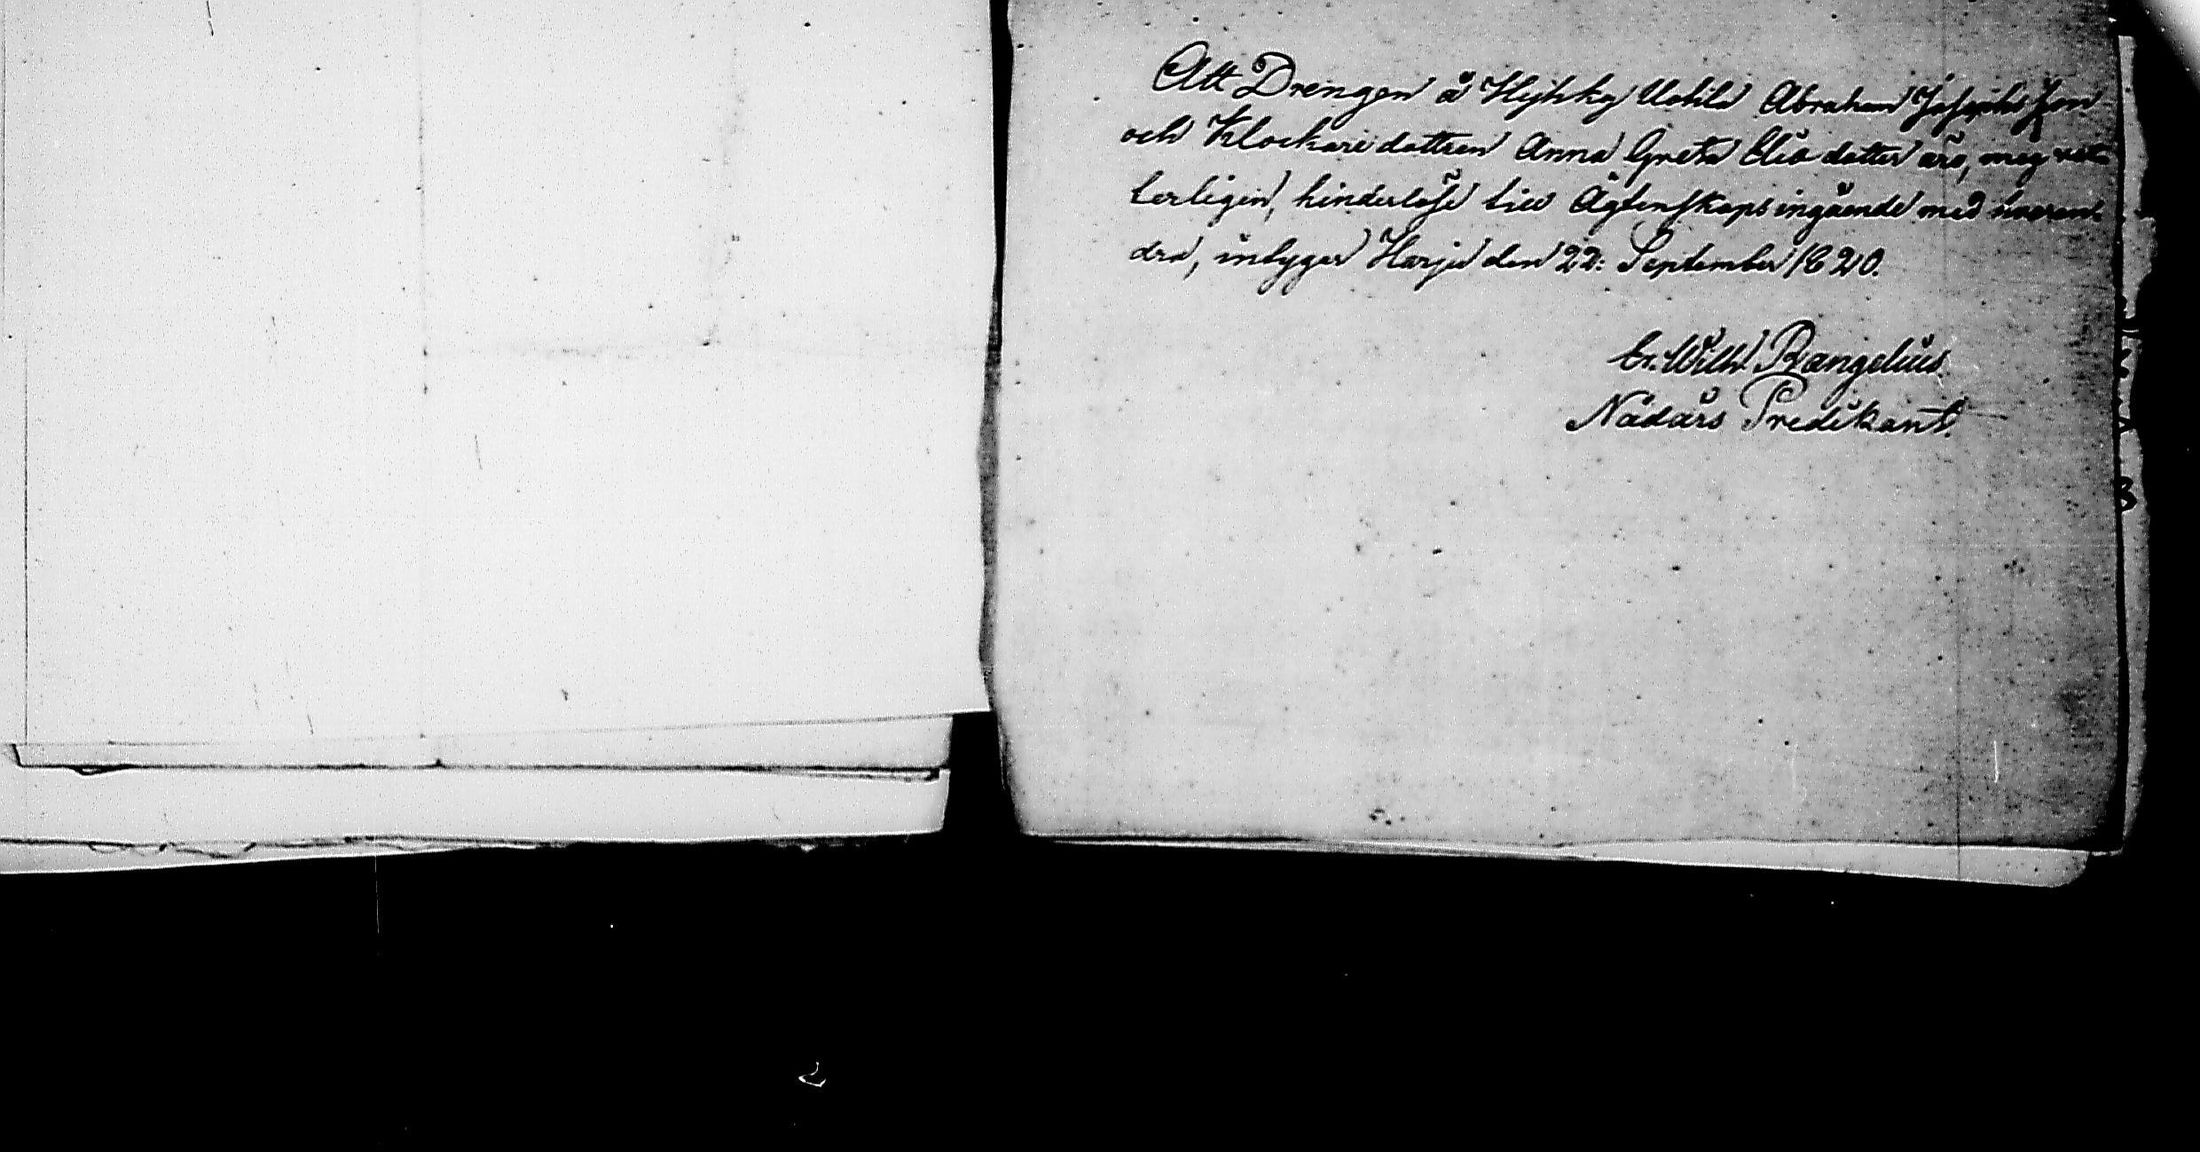 Att Drengen å Hyhky Uotila Abraham Josephsson
och Klockare dottren Anna Greta Elia dotter äro, mig vet-
terligen, hinderlöse till Ägtenskaps ingående med hvaran-
dra, intygar Harju den 22: September 1820.
Wilh. Rængelius.
Nådårs Predikant.